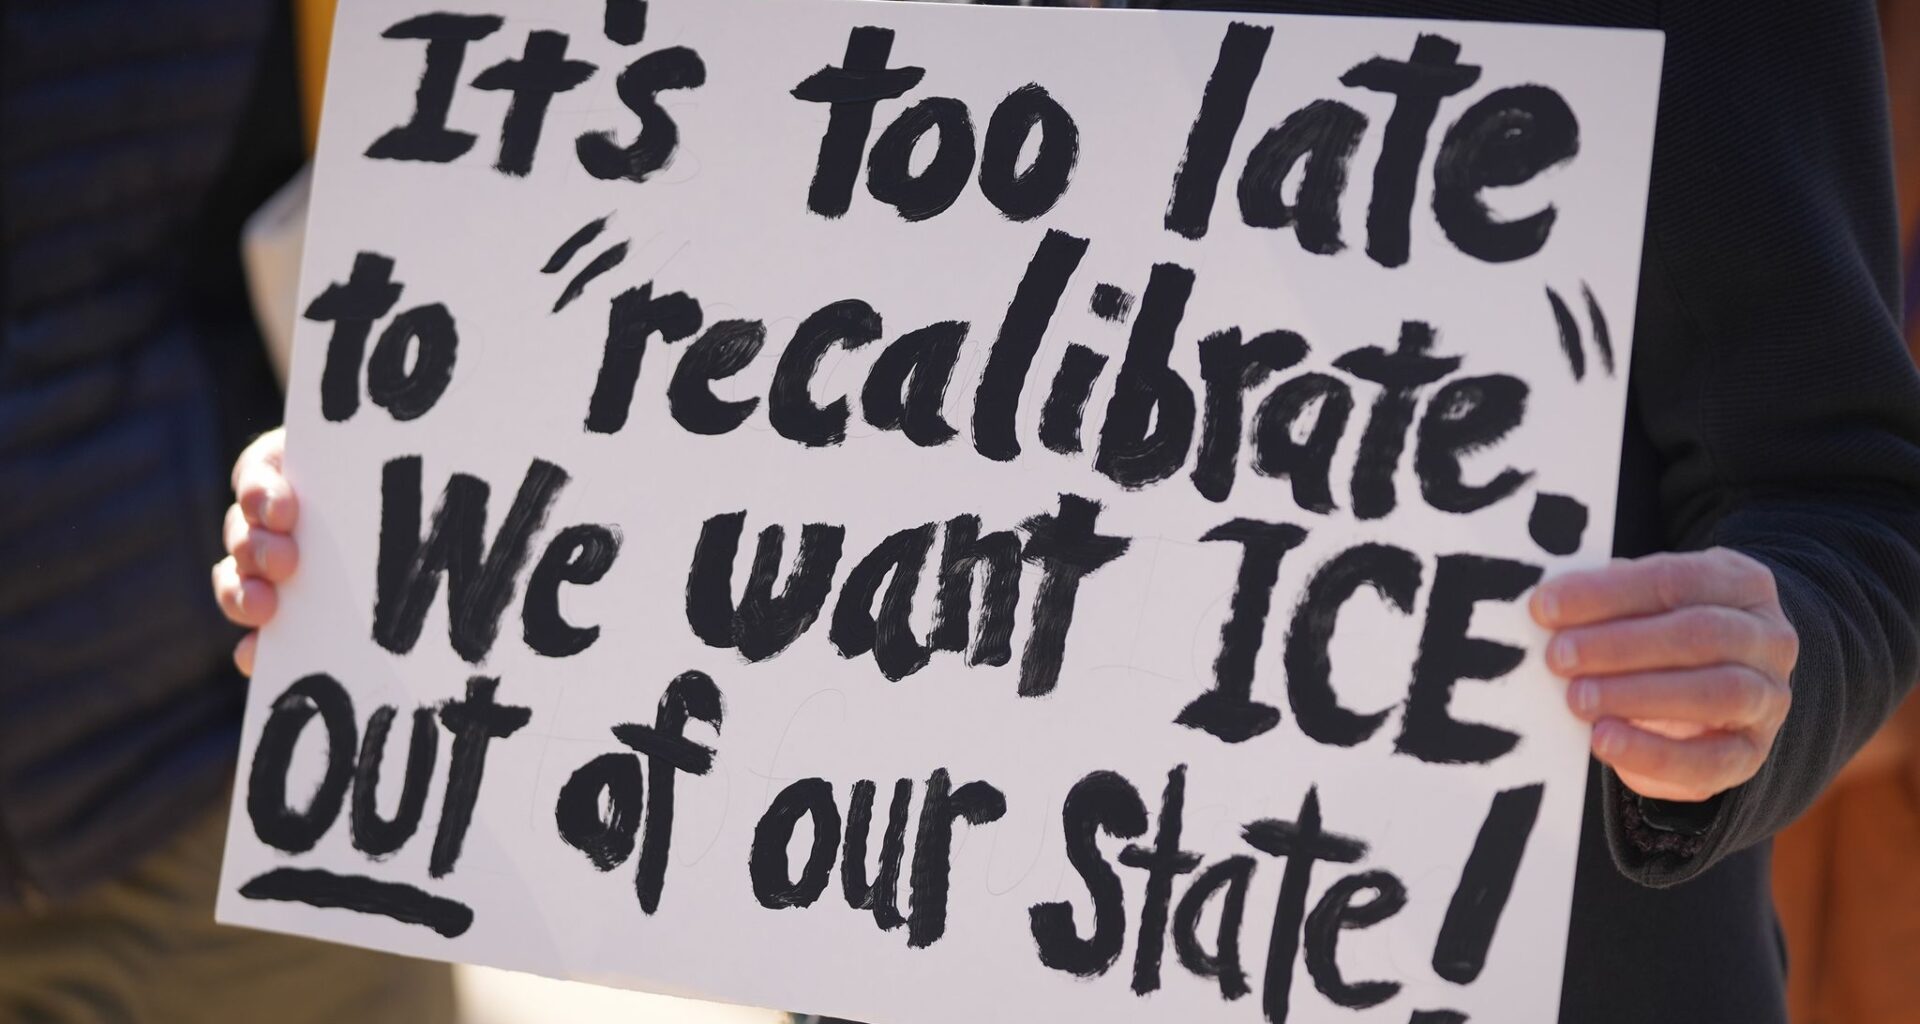 It's too late
to "recalibrate."
We want ICE
out of our State!